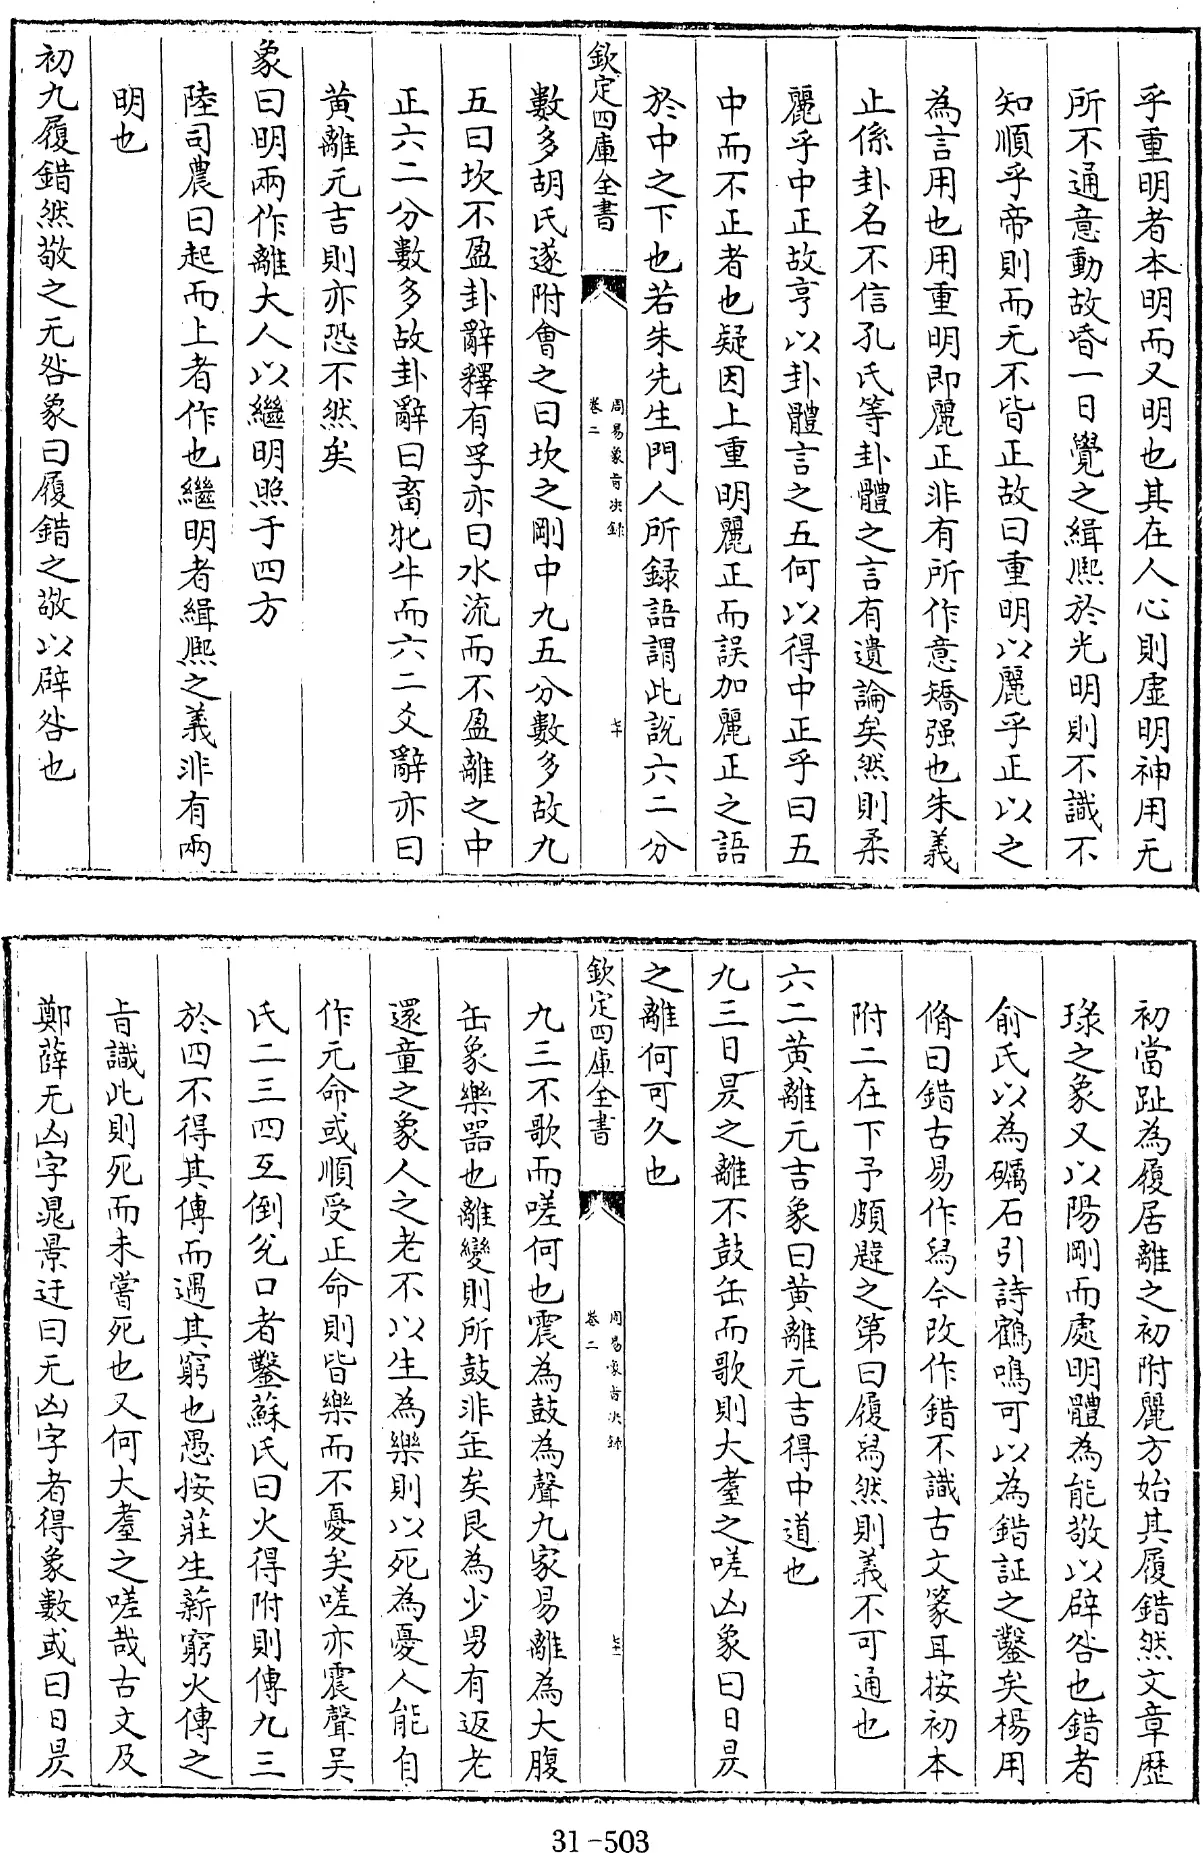 乎重明者本明而又明也其在人心則虛明神用无
所不通意動故昏一日覺之緝熙於光明則不識不
知順乎帝則而无不皆正故曰重明以麗乎正以之
為言用也用重明即麗正非有所作意矯强也朱義
止係卦名不信孔氏等卦體之言有遺論矣然則柔
麗乎中正故亨以卦體言之五何以得中正乎曰五
中而不正者也疑因上重明麗正而誤加麗正之語
於中之下也若朱先生門人所録語謂此說六二分
欽定四庫全書
周易象旨決録
卷二
七十
數多胡氏遂附會之曰坎之剛中九五分數多故九
五曰坎不盈卦辭釋有孚亦曰水流而不盈離之中
正六二分數多故卦辭曰畜牝牛而六二爻辭亦曰
黄離元吉則亦恐不然矣
象曰明兩作離大人以繼明照于四方
陸司農曰起而上者作也繼明者緝熙之義非有兩
明也
初九履錯然敬之无咎象曰履錯之敬以辟咎也
初當趾為履居離之初附麗方始其履錯然文章歴
琭之象又以陽剛而處明體為能敬以辟咎也錯者
俞氏以為礪石引詩鶴鳴可以為錯証之鑿矣楊用
脩曰錯古易作舄今改作錯不識古文篆耳按初本
附二在下予頗韙之第曰履舄然則義不可通也
六二黄離元吉象曰黄離元吉得中道也
九三日昃之離不鼓缶而歌則大耋之嗟凶象曰日昃
之離何可久也
欽定四庫全書
周易象旨決録
卷二
七十一
九三不歌而嗟何也震為鼓為聲九家易離為大腹
缶象樂器也離變則所鼓非缶矣艮為少男有返老
還童之象人之老不以生為樂則以死為憂人能自
作元命或順受正命則皆樂而不憂矣嗟亦震聲吴
氏二三四互倒兊口者鑿蘇氏曰火得附則傳九三
於四不得其傳而遇其窮也愚按莊生薪窮火傳之
旨識此則死而未嘗死也又何大耋之嗟哉古文及
鄭薛无凶字晁景迂曰无凶字者得象數或曰日昃
31-503